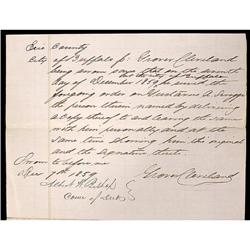 Erie County
City of Buffalo ss. Grover Cleveland
being sworn says that on the seventh
day of December 1859 he served the
foregoing order on A. Scroggs
the person therein named by delivering
a copy thereof to and leaving the same
with him personally and at the same
time showing him the original
and the signature thereto
Sworn to before me
Dec 7th 1859
Grover Cleveland
Com of Deeds